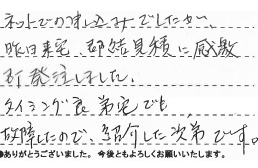 ネットでの申し込みでしたが、
昨日来宅、即結見積に感激
即発注しました。
タイミング良弟宅でも、
故障したので、紹介した次第です。
●ありがとうございました。今後ともよろしくお願いいたします。